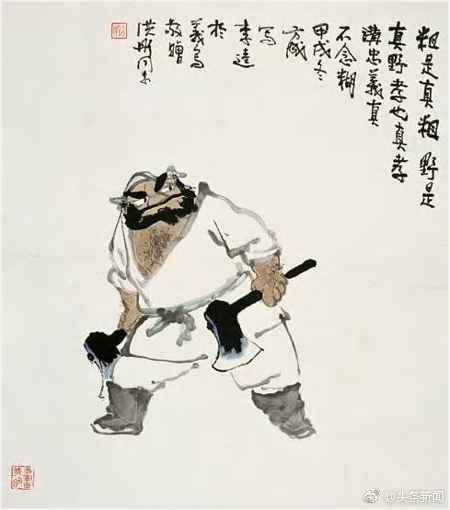 粗是真粗 野是
真野 孝也真孝
講忠義真
不含糊
甲戌冬
方成
写
李逵
於
義烏
敬贈
洪 同志
@头条新闻